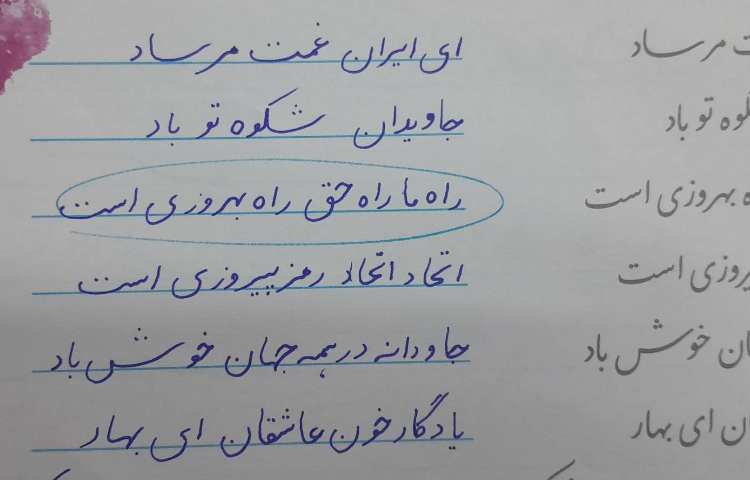 ای ایران غمت مرساد
جاویدان شکوه تو باد
راه ما راه حق راه بهروزی است
اتحاد اتحاد رمز پیروزی است
جاودانه در همه جهان خوش باد
یادگار خون عاشقان ای بهار
مرساد
تو باد
بهروزی است
است
خوش باد
ای بهار